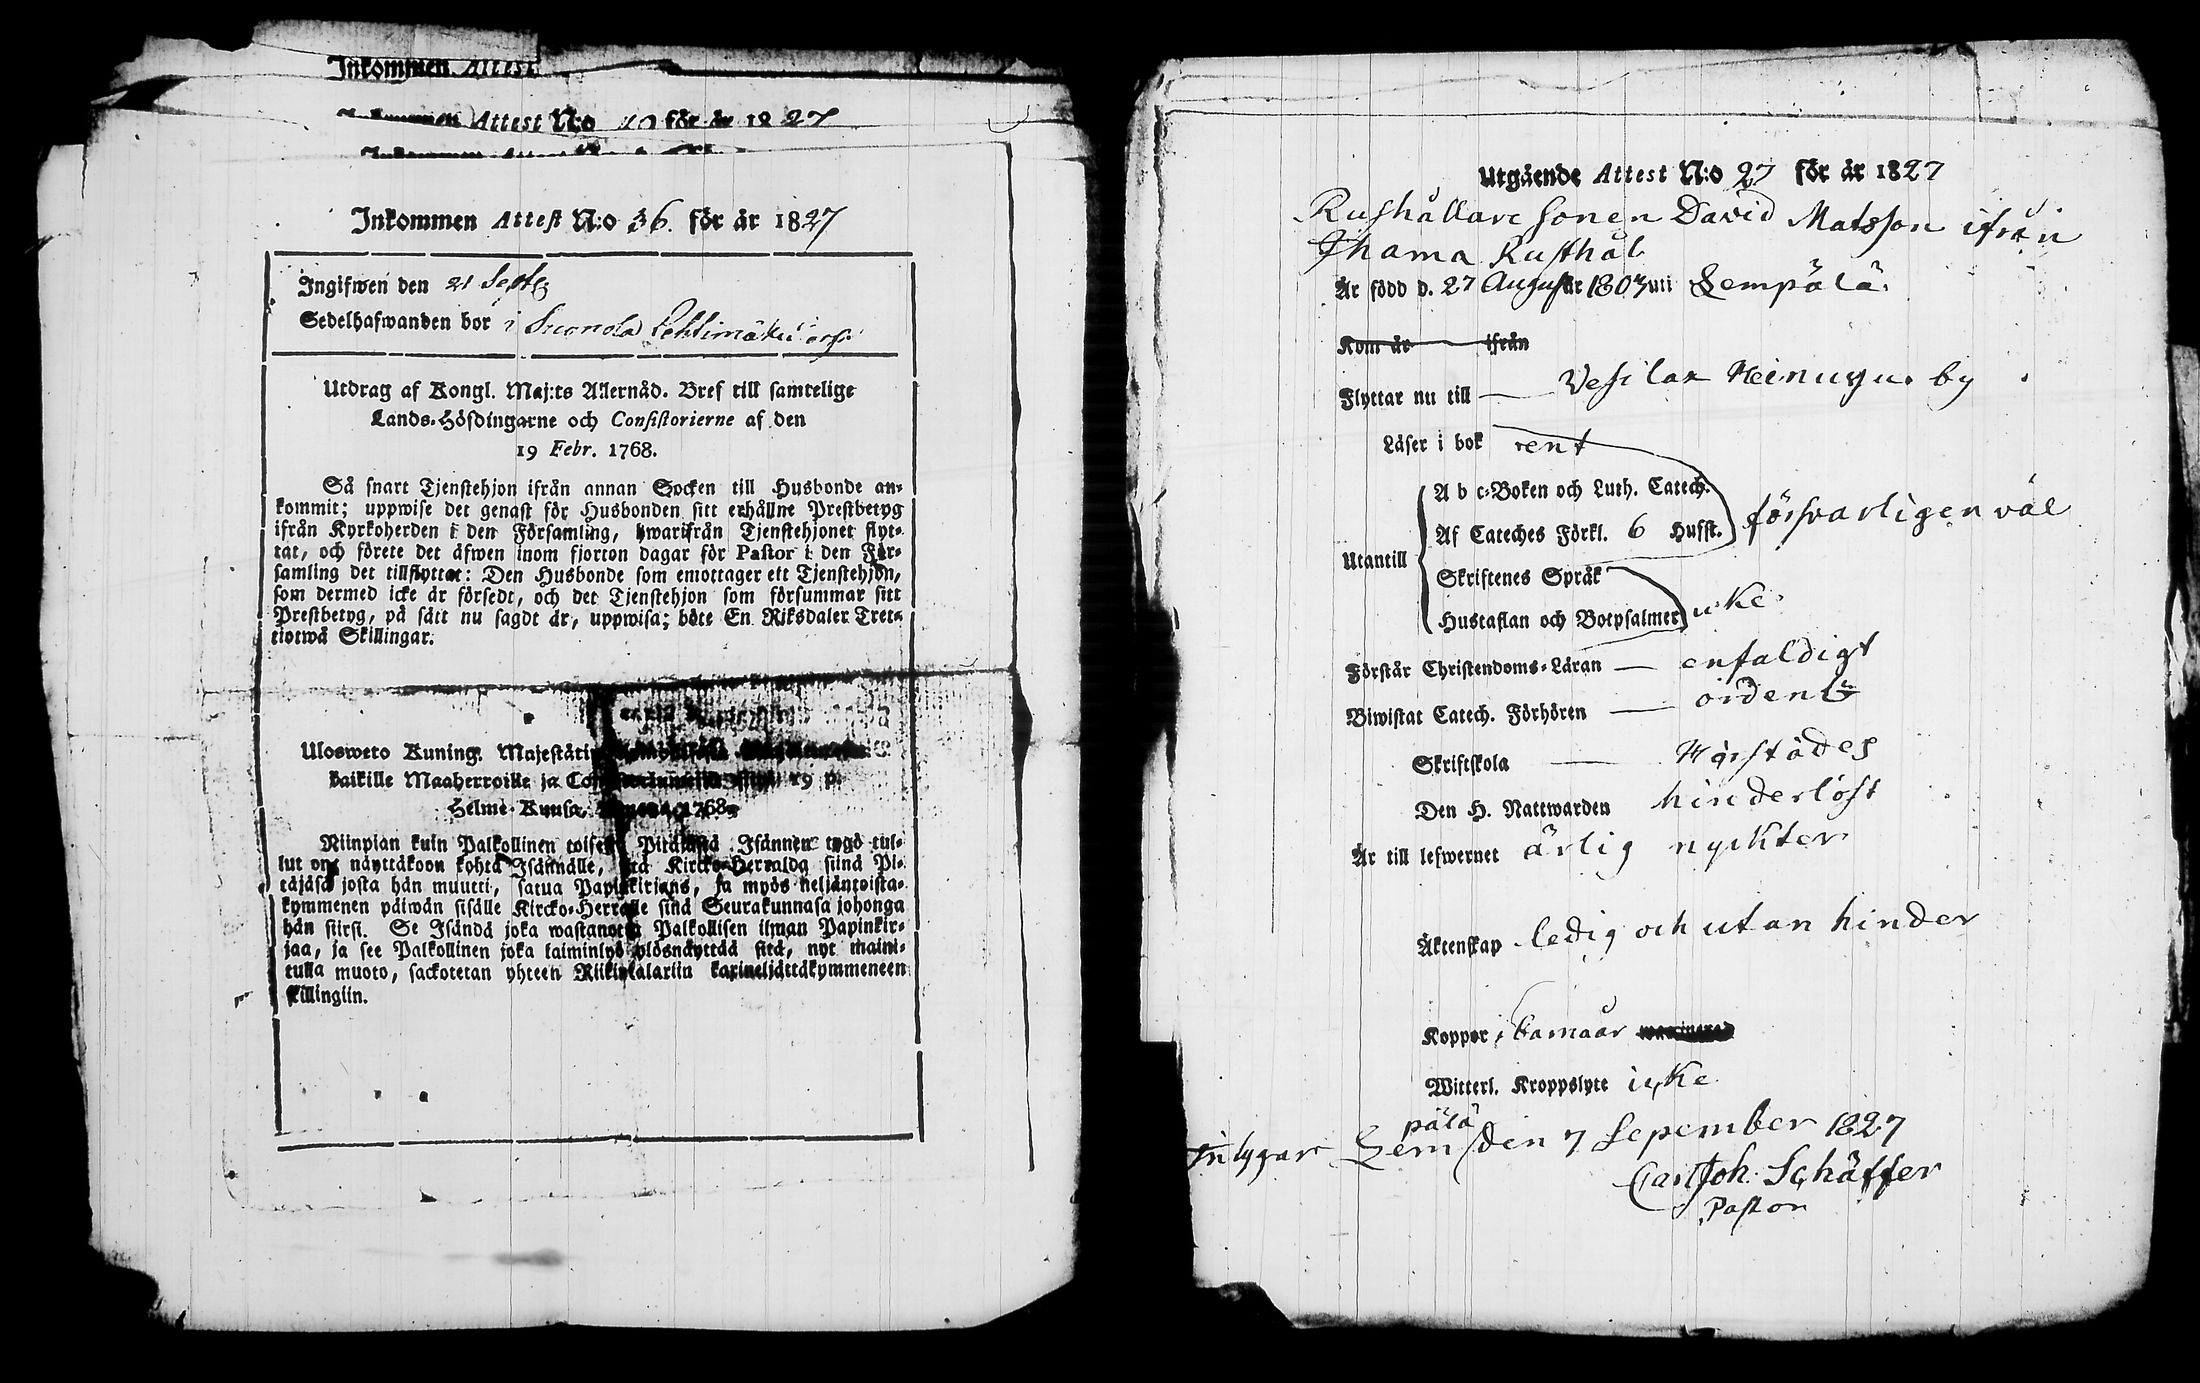 Inkommen Attest
Attest N:o 10 för år 1827
Inkommen Attest N:o 36. för år 1827
Ingifwen den 21 Septb
Sedelhafwanden bor i Suonola Lehtimäki
Utdrag af Kongl. Maj:ts Allernåd. Bref till samtelige
Lands-Höfdingarne och Consistorierne af den
19 Febr. 1768.
Så snart Tjenstehjon ifrån annan Socken till Husbonde an-
kommit; uppwise det genast för Husbonden sitt erhållne Prestbetyg
ifrån Kyrkoherden i den Församling, hwarifrån Tjenstehjonet flyt-
tat, och förete det äfwen inom fjorton dagar för Pastor i den För-
samling det tillflyttat: Den Husbonde som emottager ett Tjenstehjon,
som dermed icke är försedt, och det Tjenstehjon som försummar sitt
Prestbetyg, på sätt nu sagdt är, uppwisa; böte En Riksdaler Tret-
tiotwå Skillingar.
Ulosweto Kuning. Majestätin
kaikille Maaherroille ja 19 p.
Helme-Kuusa 1768.
Niinpian kuin Palkollinen toisesta Pitäjästä Isännen tygö tul-
lut on, näyttäkoon kohta Isännälle, sitä Kircko-Herralda siinä Pi-
täjäsä josta hän muutti, saatua Papinkirjans, ja myös neljäntoista-
kymmenen päiwän sisälle Kircko-Herralle siinä Seurakunnasa johonga
hän siirsi. Se Isändä joka wastanotta Palkollisen ilman Papinkir-
jaa, ja see Palkollinen joka laiminlyö ylösnäyttää sitä, nyt maini-
tulla muoto, sackotetan yhteen Riikintalariin kaxineljättäkymmeneen
skillingiin.
Utgående Attest N:o 27 för år 1827
Rushållare sonen David Matsson ifrån
Jhama Rusthål
Är född d. 27 August år 1803 uti Lempälä.
Kom år ifrån
Flyttar nu till Vesilax Heinusu by
Läser i bok rent
A b c-Boken och Luth. Catech.
Af Cateches Förkl. 6 Hufst. försvarligen väl
Utantill
Skriftenes Språk
Hustaflan och Botpsalmer icke
Förstår Christendoms-Läran enfaldigt
Biwistat Catech. Förhören ordentl.
Skriftskola Härstädes
Den H. Nattwarden hinderlöst
Är till lefwernet ärlig nyckter
Äktenskap ledig och utan hinder
Koppor i barnaår
Witterl. Kroppslyte icke
pälä
Intygar Lem den 7 Sepember 1827
Carl Joh. Schäffer
Pastor